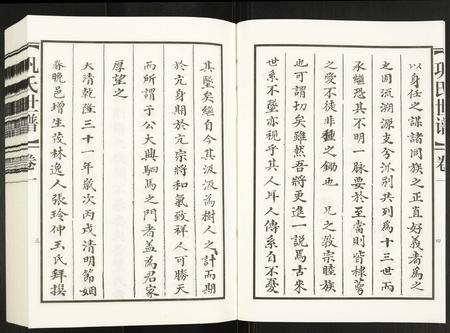 以身任之謀諸同族之正直好義者為之
之因流溯源支分派別共列為十三世而
承繼恐其不明一脉要於至當則皆棣萼
之愛不徒非種之鋤也 兄之敦宗睦族
也可謂切矣雖然吾將更進一說焉古來
世系不墜亦視乎其人耳人傳系自不憂
其墜矣繼自今其汲汲為樹人之計而期
於亢身期於亢宗將和氣致祥人可勝天
而所謂于公大興駟馬之門者蓋為君家
厚望之
大清乾隆三十一年歲次丙戌清明節姻
眷晚邑增生茂林逸人張玲仲玉氏拜撰
氏世譜
卷一